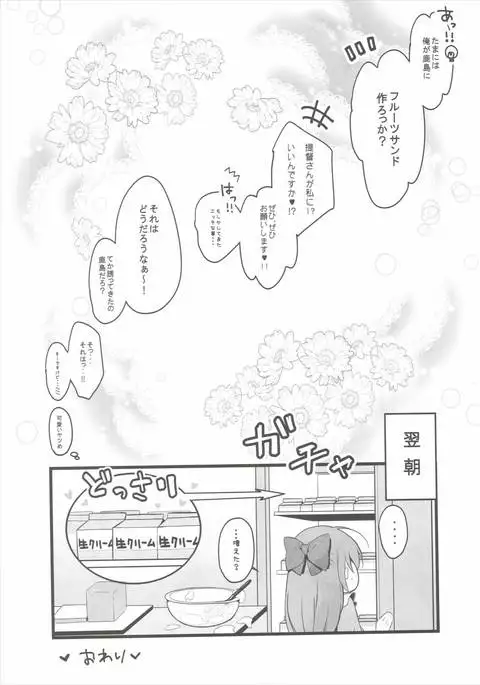 あっ!!
たまには
俺が鹿島に
フルーツサンド
作ろっか?
提督さんが私に!?
いいんですか♥!?
ぜひ、ぜひ
お願いします♥!!
はっ!!
もしかしてまた
エッチな事・・・
それは
どうだろうなぁ~!
てか誘ってきたの
鹿島だろ?
そっ・・・
それはっ・・!!
可愛いヤツめ
翌朝
・・・・
ガチャ
どっさり
生クリーム
生クリーム
生クリーム
・・・増えた?
♥ おわり ♥